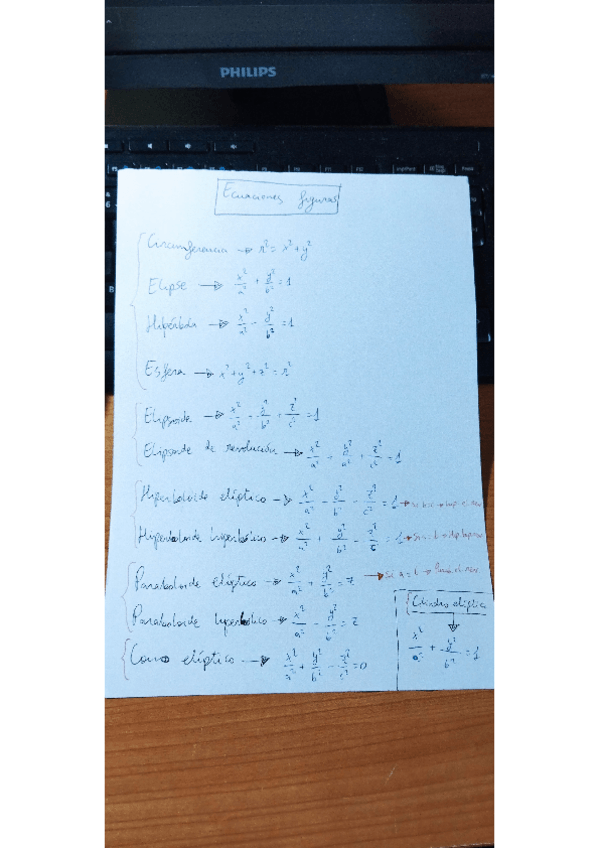 PHILIPS
Ecuaciones figuras
Circunferencia → r² = x² + y²
Elipse → x²/a² + y²/b² = 1
Hipérbola → x²/a² - y²/b² = 1
Esfera → x² + y² + z² = r²
Elipsoide → x²/a² + y²/b² + z²/c² = 1
Elipsoide de revolución → x²/a² + y²/a² + z²/c² = 1
Hiperboloide elíptico → x²/a² - y²/b² - z²/c² = 1
Hiperboloide hiperbólico → x²/a² + y²/b² - z²/c² = 1
Paraboloide elíptico → x²/a² + y²/b² = z → Si a = b →
Paraboloide hiperbólico → x²/a² - y²/b² = z
Cono elíptico → x²/a² + y²/b² - z²/c² = 0
Cilindro elíptico
x²/a² + y²/b² = 1